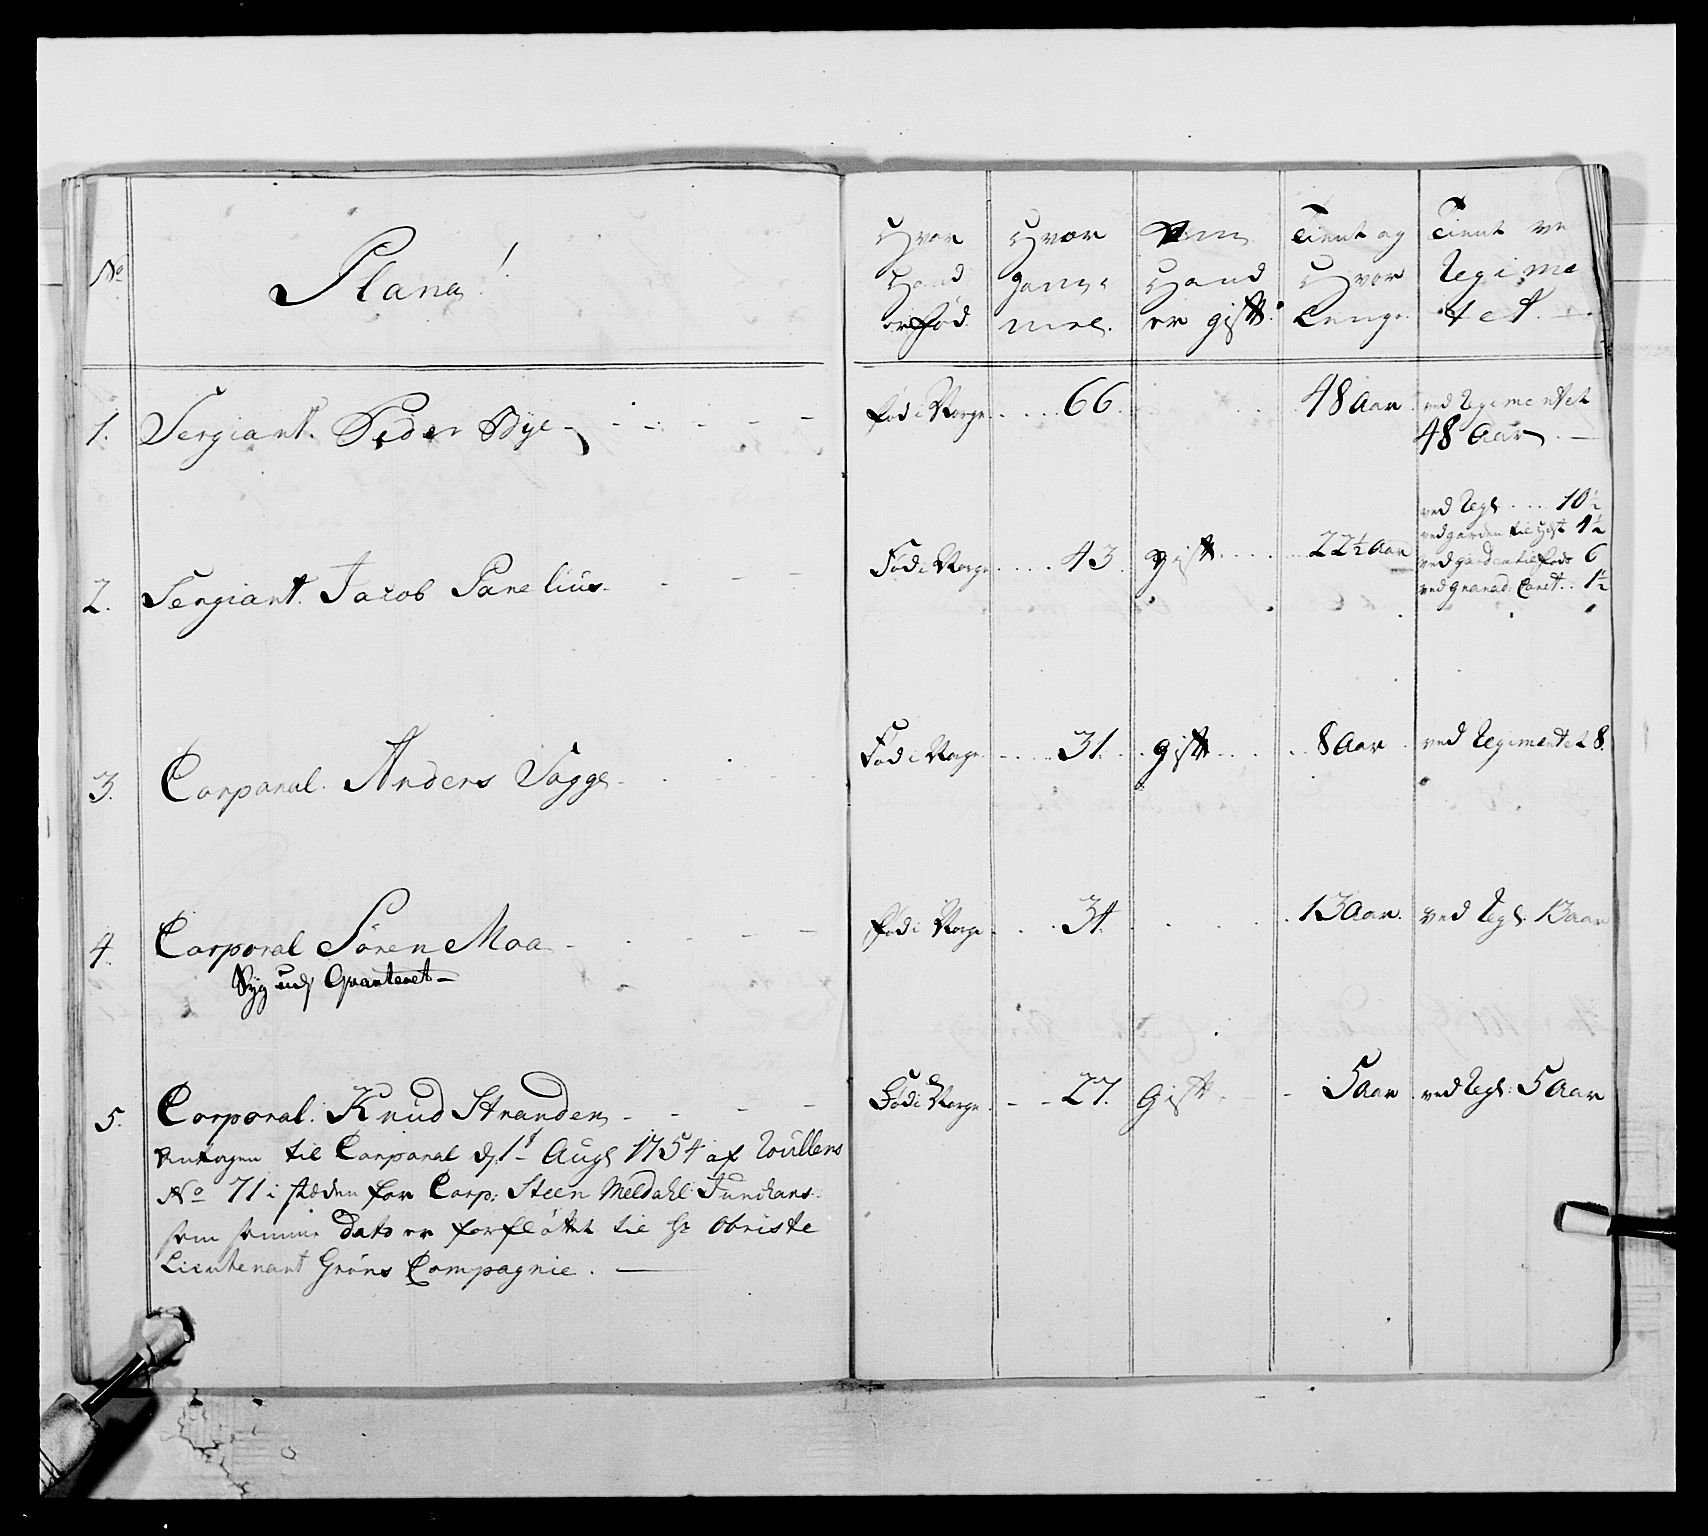 No
Plana!
Hvor Hand er Fød.
Hvor Gam= mel.
Hand er gift.
Tient og Hvor Lenge.
Tient ve Regime tet.
1. Sergiant. Peder Bye fød i Norge 66. 48 Aar ved Regimentet
48 Aar
2. Sergiant. Jacob Parelius Fød i Norge 43. gift 22½ Aar ved Regt 10½
ved garden til Hest 4½
ved garden til fods 6
ved Granad: Coret 1½
3. Corporal. Anders Fogge Fød i Norge 31. gift 8 Aar ved Regimentet 8.
4. Corporal Søren Moa fød i Norge 34. 13 Aar. ved Regt: 13 aar
Syg udj Qvarteret
5. Corporal. Knud Stranden Fød i Norge 27. Gift 5 Aar ved Regt: 5 Aar
Antagen til Corporal dj 1t Augt 1754 af
No 71 i stæden for Corp: Steen Meldahl
som samme Dato er forfløttet til Hr Obriste
Lieutenant Gröns Compagnie.